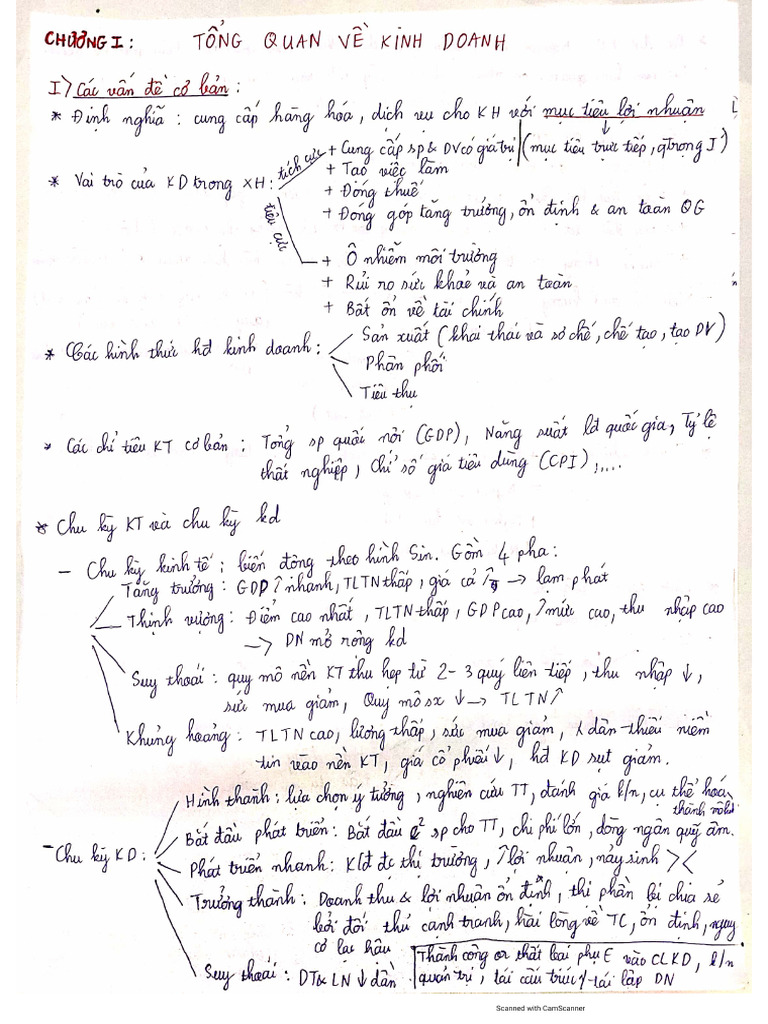 CHƯƠNG I: TỔNG QUAN VỀ KINH DOANH
I> Các vấn đề cơ bản:
* Định nghĩa: cung cấp hàng hóa, dịch vụ cho KH với mục tiêu lợi nhuận
(mục tiêu trực tiếp, qtrọng I)
* Vai trò của KD trong XH:
tích cực
+ Cung cấp sp & DV có giá trị
+ Tạo việc làm
+ Đóng thuế
+ Đóng góp tăng trưởng, ổn định & an toàn QG
tiêu cực
+ Ô nhiễm môi trường
+ Rủi ro sức khoẻ và an toàn
+ Bất ổn về tài chính
* Các hình thức hđ kinh doanh:
Sản xuất (khai thái và sơ chế, chế tạo, tạo DV)
Phân phối
Tiêu thụ
* Các chỉ tiêu KT cơ bản: Tổng sp quốc nội (GDP), Năng suất lđ quốc gia, Tỷ lệ
thất nghiệp, Chỉ số giá tiêu dùng (CPI),....
* Chu kỳ KT và chu kỳ kd
- Chu kỳ kinh tế: biến động theo hình Sin. Gồm 4 pha:
Tăng trưởng: GDP ↑ nhanh, TLTN thấp, giá cả ↑ → lạm phát
Thịnh vượng: Điểm cao nhất, TLTN thấp, GDP cao, ↑ mức cao, thu nhập cao
→ DN mở rộng kd
Suy thoái: quy mô nền KT thu hẹp từ 2-3 quý liên tiếp, thu nhập ↓,
sức mua giảm, Quy mô sx ↓ → TLTN ↑
Khủng hoảng: TLTN cao, lương thấp, sức mua giảm, dân thiếu niềm
tin vào nền KT, giá cổ phiếu ↓, hđ KD sụt giảm.
- Chu kỳ KD:
Hình thành: lựa chọn ý tưởng, nghiên cứu TT, đánh giá k/n, cụ thể hoá
thành
Bắt đầu phát triển: Bắt đầu c² sp cho TT, chi phí lớn, dòng ngân quỹ âm.
Phát triển nhanh: KĐ đc thị trường, ↑ lợi nhuận, nảy sinh ><
Trưởng thành: Doanh thu & lợi nhuận ổn định, thị phần bị chia sẻ
bởi đối thủ cạnh tranh, hài lòng về TC, ổn định, nguy
cơ lạc hậu
Suy thoái: DT & LN ↓ dần
Thành công or thất bại phụ E vào CLKD, k/n
quản trị, tái cấu trúc/tái lập DN
Scanned with CamScanner